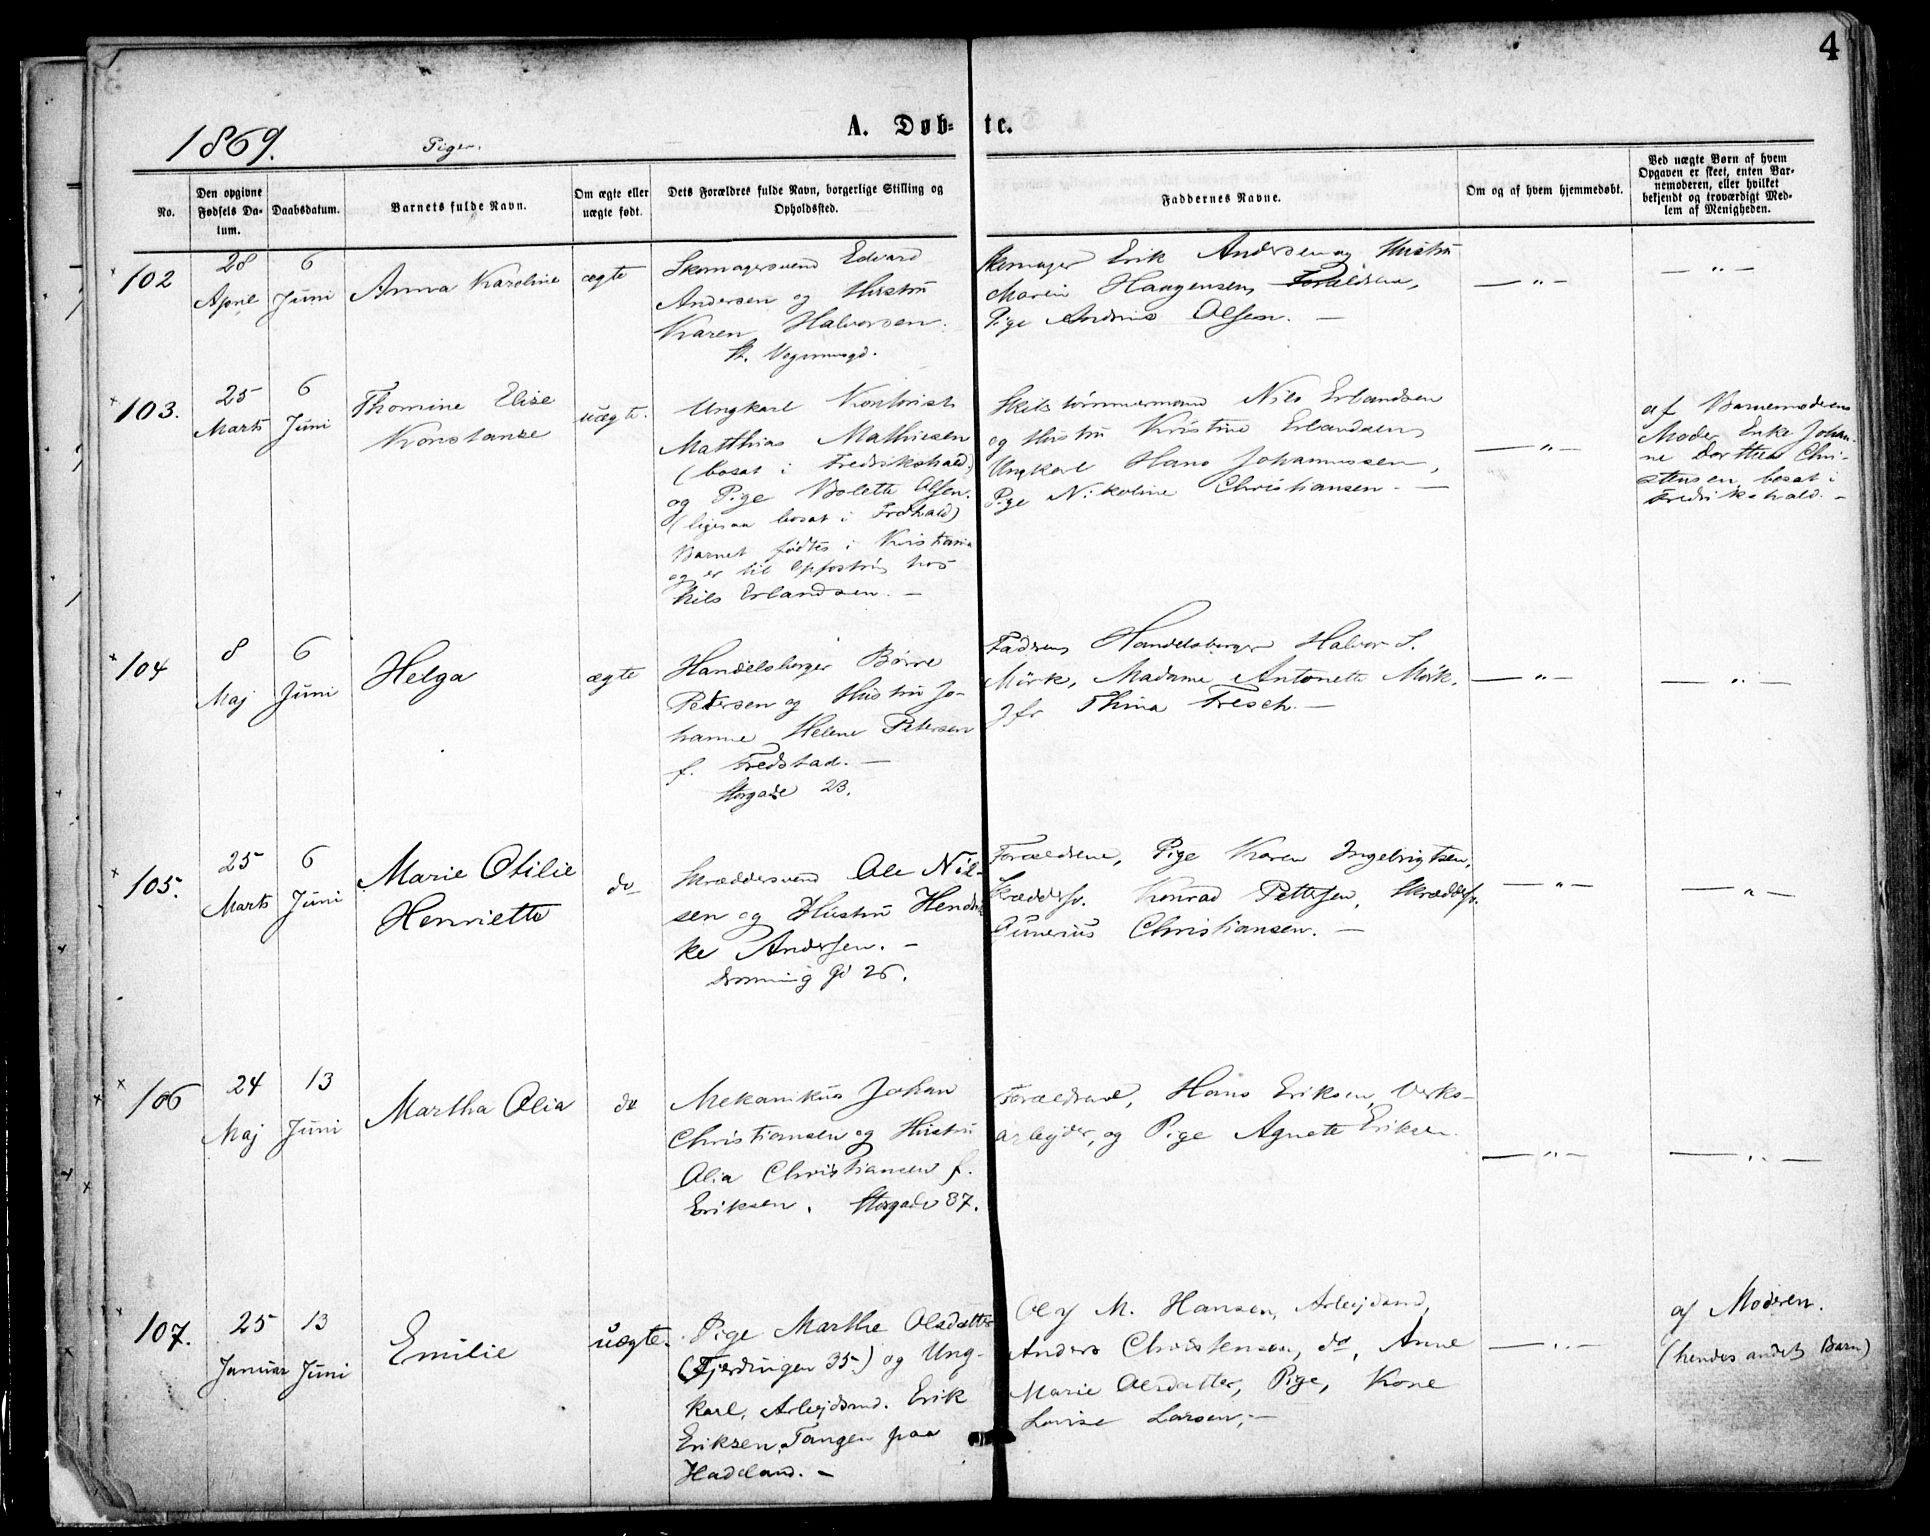 4
A. Døb- te.
1869.
Piger.
No.
Den opgivne Fødsels Da-tum.
Daabsdatum.
Barnets fulde Navn.
Om ægte eller uægte født.
Dets Forældres fulde Navn, borgerlige Stilling og Opholdssted.
Faddernes Navne.
Om og af hvem hjemmedøbt.
Ved uægte Børn af hvem Opgaven er skeet, enten Bar-nemoderen, eller hvilket bekjendt og troværdigt Med-lem af Menigheden.
102
28 April
6 Juni
Anna Karoline
ægte
Skomagersvend Edvard
Andersen og Hustru
Karen Halvorsen.
St.
Skomager Erik Andersen og Hustru
Maren Haagensen, Forældrene,
Pige Andrine Olsen. —
— " —
— " —
103.
25 Marts
6 Juni
Thomine Elise
Konstanse
uægte.
Ungkarl Kontorist
Matthias Mathiesen
(bosat i Fredrikshald)
og Pige Bolette Olsen.
(ligesaa bosat i Frdhald)
Barnet fødtes i Kristiania
og er til Opfostring hos
Nils Erlandsen. —
Skibstømmermand Nils Erlandsen
og Hustru Kristine Erlandsen,
Ungkarl Hans Johannessen,
Pige Nikoline Christiansen. —
— " —
af Barnemoderens
Moder Enke Johan-
ne Dorthea Chri-
stensen, bosat i
Fredrikshald. —
104
8 Maj
6 Juni
Helga
ægte
Handelsborger Børre
Petersen og Hustru Jo-
hanne Helene Petersen
f. Fredstad. —
Storgade 23.
Fadren, Handelsborger Halvor S.
Mörk, Madame Antonette Mörk,
Jfr Thina Fresch. —
— " —
— " —
105.
25 Marts
6 Juni
Marie Otilie
Henriette
do
Skræddersvend Ole Nil-
sen og Hustru Hendri-
ke Andersen. —
Dronning Gd 26.
Forældrene, Pige Karen Ingebrigtsen,
Skræddersv. Konrad Pettersen, Skræddersv.
Gunerius Christiansen. —
— " —
— " —
106
24 Maj
13 Juni
Martha Olia
do
Mekanikus Johan
Christiansen og Hustru
Olia Christiansen f.
Eriksen. Storgade 37.
Forældrene, Hans Eriksen, Verks-
arbejder, og Pige Agnete Eriksen.
— " —
— " —
107.
25 Januar
13 Juni
Emilie
uægte.
Pige Marthe Olsdatter
(Fjerdingen 35) og Ung-
karl, Arbejdsmd. Erik
Eriksen, Tangen paa
Hadeland. —
Olaf M. Hansen, Arbejdsmd,
Anders Christensen, do, Anne
Marie Olsdatter, Pige, Kone
Lovise Larsen. —
— " —
af Moderen.
(hendes andet Barn)